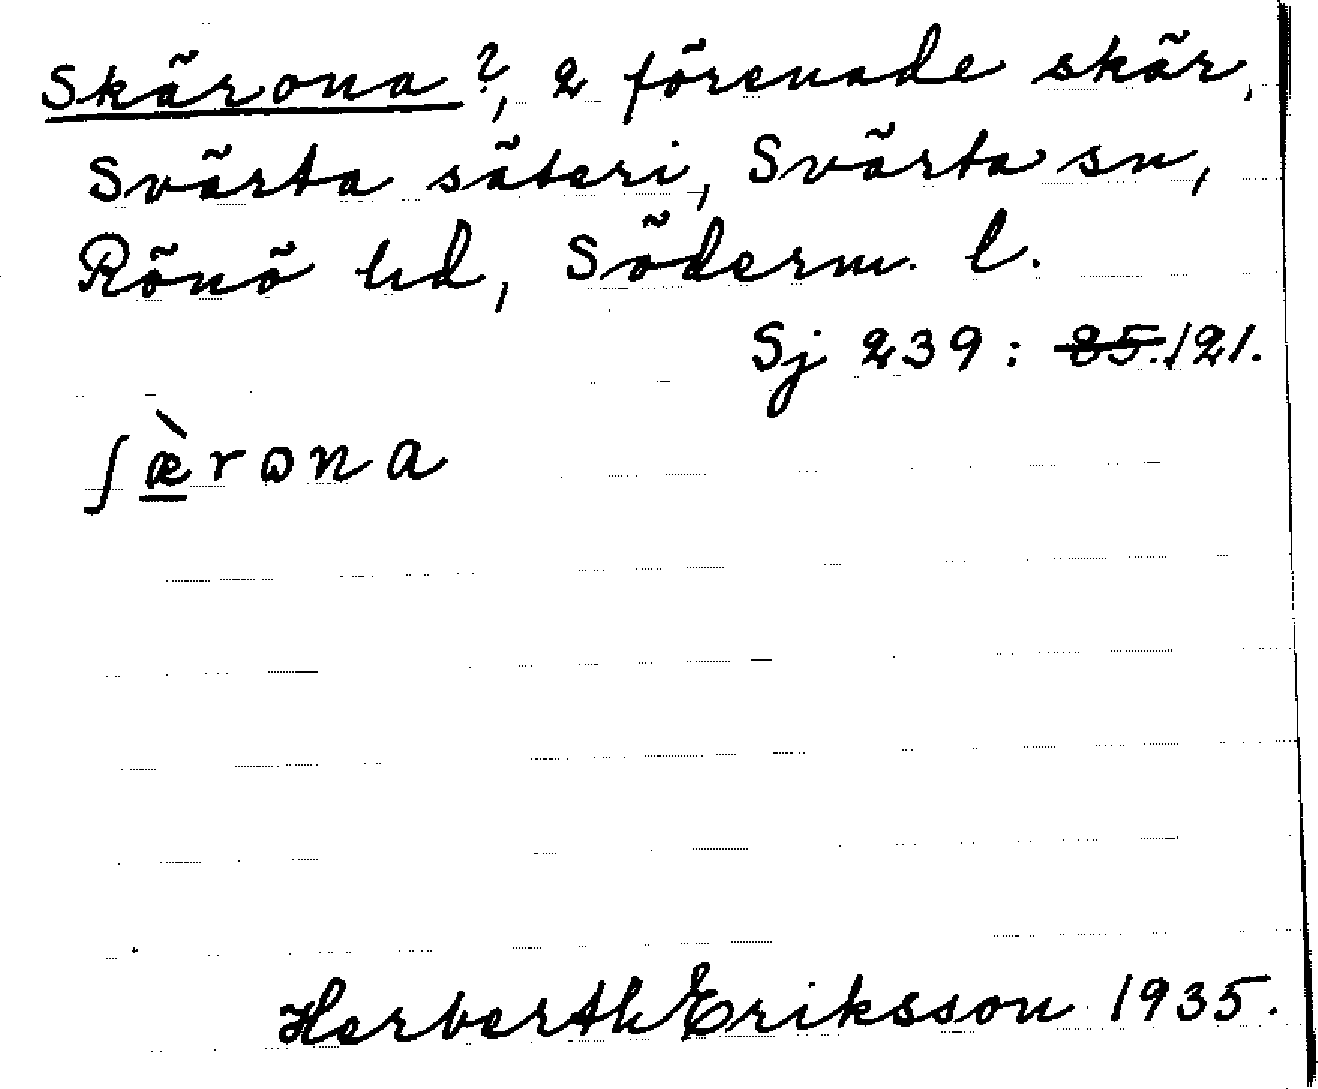 Skärona?, 2 förenade skär,
Svärta säteri, Svärta sn,
Rönö hd, Söderm. l.
Sj 239: 85./21.
ʃæ̀rɷna
Herberth Eriksson 1935.